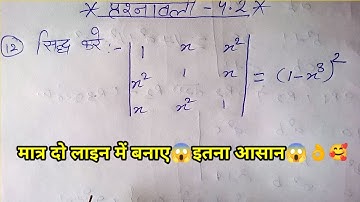 * प्रश्नावली - 4.2 *
(12) सिद्ध करें :- | 1 x x² |
| x² 1 x | = (1-x³)²
| x x² 1 |
मात्र दो लाइन में बनाए😱इतना आसान😱👌🥰